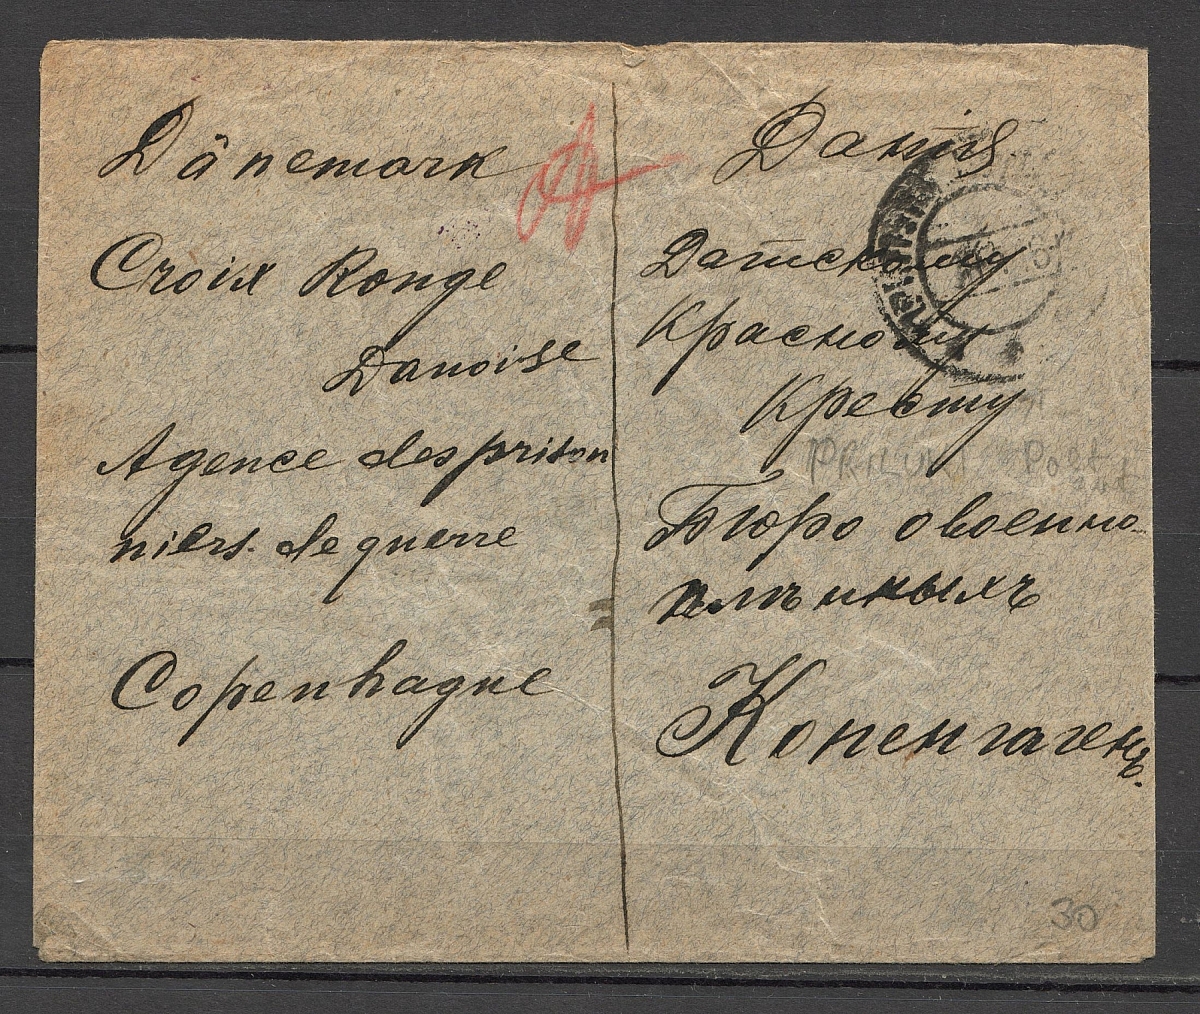 Dänemark
Croix Rouge
Danoise
Agence des prison
niers. de guerre
Copenhague
Данія
Датскому
Красному
Кресту
PRILUKI Post
Бюро о военно-
плѣнныхъ
Копенгагенъ.
30